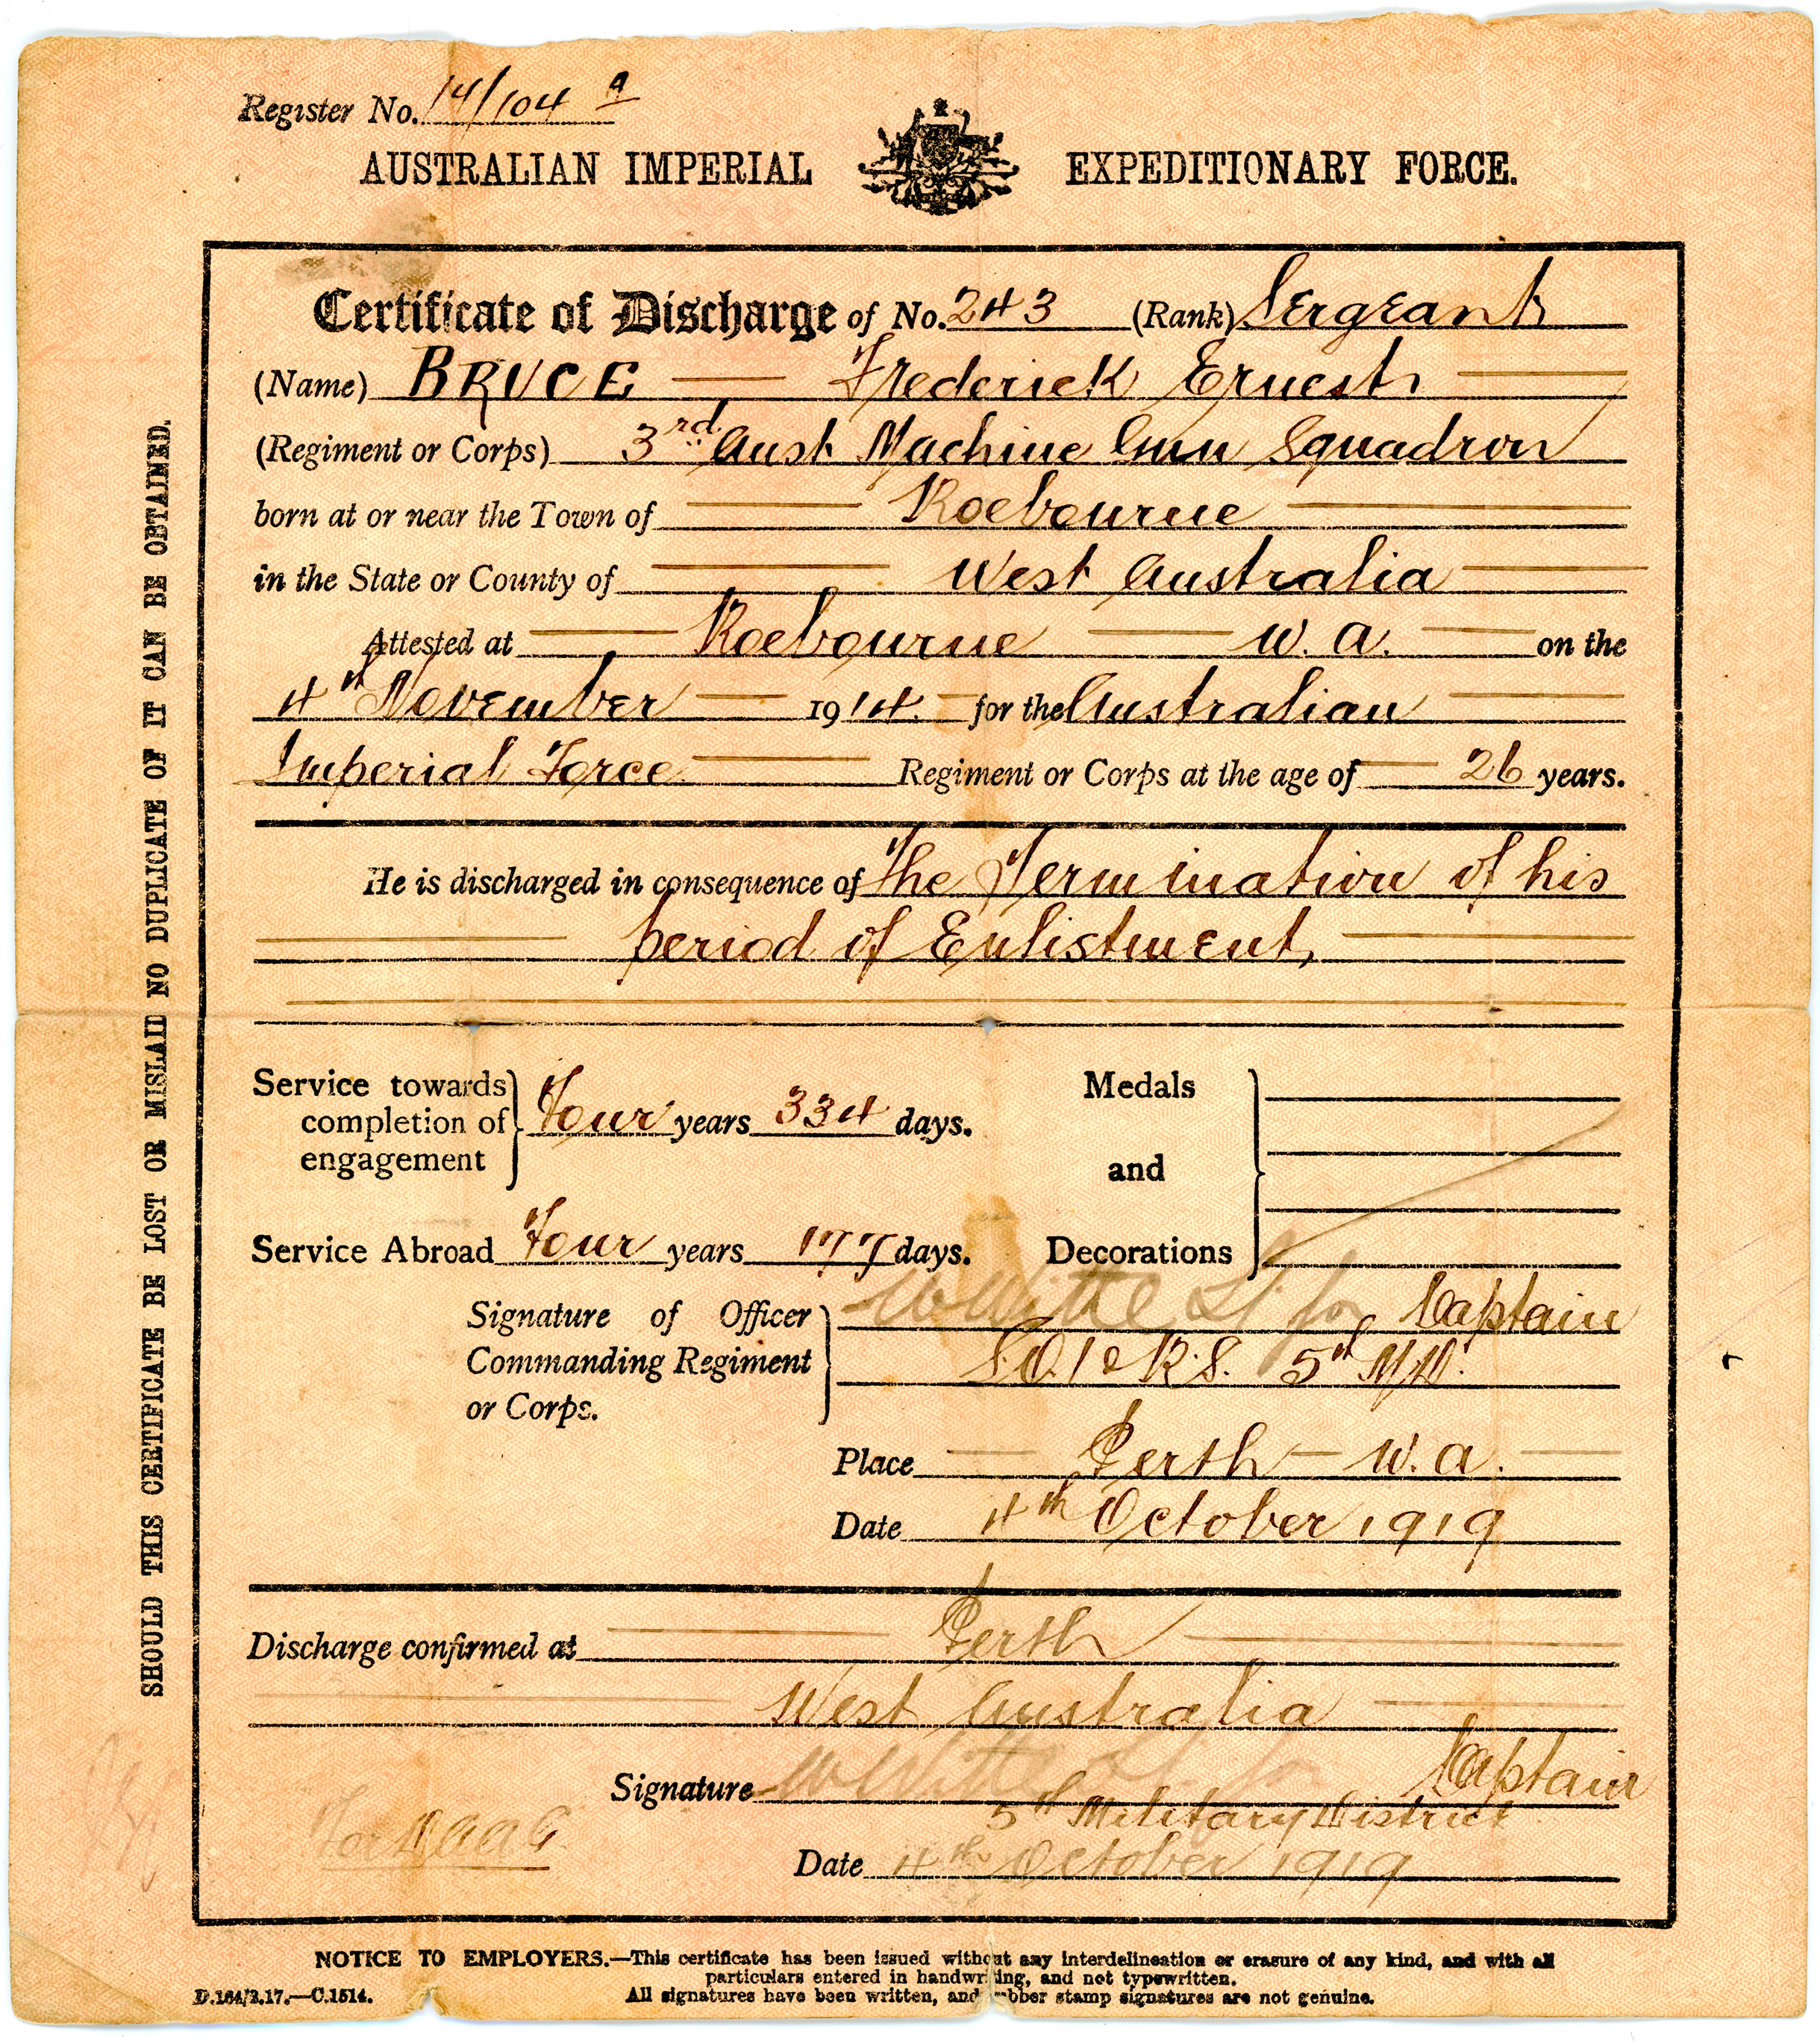 Register No. 14/104 a
AUSTRALIAN IMPERIAL EXPEDITIONARY FORCE.
Certificate of Discharge of No. 243 (Rank) Sergeant
(Name) BRUCE — Frederick Ernest —
(Regiment or Corps) 3rd Aust Machine Gun Squadron
born at or near the Town of — Roebourne —
in the State or County of — West Australia —
Attested at — Roebourne — W. A. — on the
4th November — 1914. — for the Australian —
Imperial Force — Regiment or Corps at the age of — 26 years.
He is discharged in consequence of The Termination of his
— period of Enlistment, —
Service towards completion of engagement } Four years 334 days.
Medals and Decorations
Service Abroad Four years 177 days.
Signature of Officer Commanding Regiment or Corps. } Lt for Captain
5th M.D.
Place — Perth — W. A. —
Date 4th October 1919
Discharge confirmed at — Perth —
— West Australia —
Signature Lt for Captain
5th Military District
Date 4th October 1919
For
NOTICE TO EMPLOYERS.—This certificate has been issued without any interdelineation or erasure of any kind, and with all
particulars entered in handwriting, and not typewritten.
D.164/2.17.—C.1514. All signatures have been written, and rubber stamp signatures are not genuine.
SHOULD THIS CERTIFICATE BE LOST OR MISLAID NO DUPLICATE OF IT CAN BE OBTAINED.